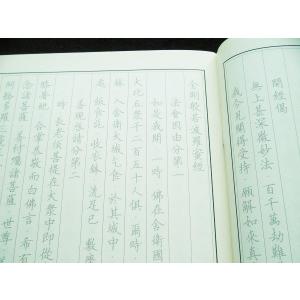 開經偈
無上甚深微妙法 百千萬劫難
我今見聞得受持 願解如來真
金剛般若波羅蜜經
法會因由分第一
如是我聞 一時 佛在舍衛國
大比丘眾千二百五十人俱 爾時
鉢 入舍衛大城乞食 於其城中
處 飯食訖 收衣鉢 洗足已 敷座
善現啟請分第二
時 長老須菩提在大眾中即從
膝著地 合掌恭敬而白佛言 希有
念諸菩薩 善付囑諸菩薩 世尊
阿耨多羅三藐三